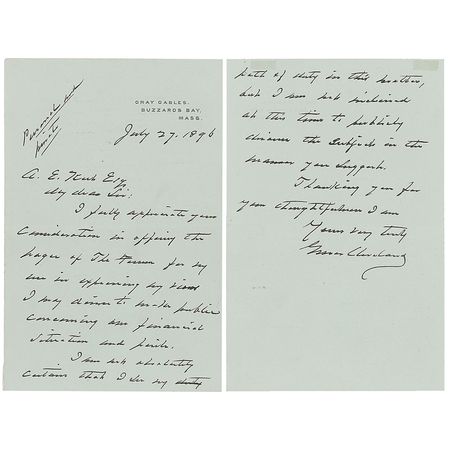 Personal and
private
GRAY GABLES.
BUZZARDS BAY,
MASS.
July 27, 1896
A. E.
My dear Sir:
I fully appreciate your
consideration in offering the
pages of The Forum for my
use in expressing any views
I may desire to make public
concerning our financial
situation and perils.
I am not absolutely
certain that I see my duty
path of duty in this matter,
but I am not inclined
at this time to publicly
discuss the subject in the
manner you suggest.
Thanking you for
your thoughtfulness I am
Yours very truly
Grover Cleveland